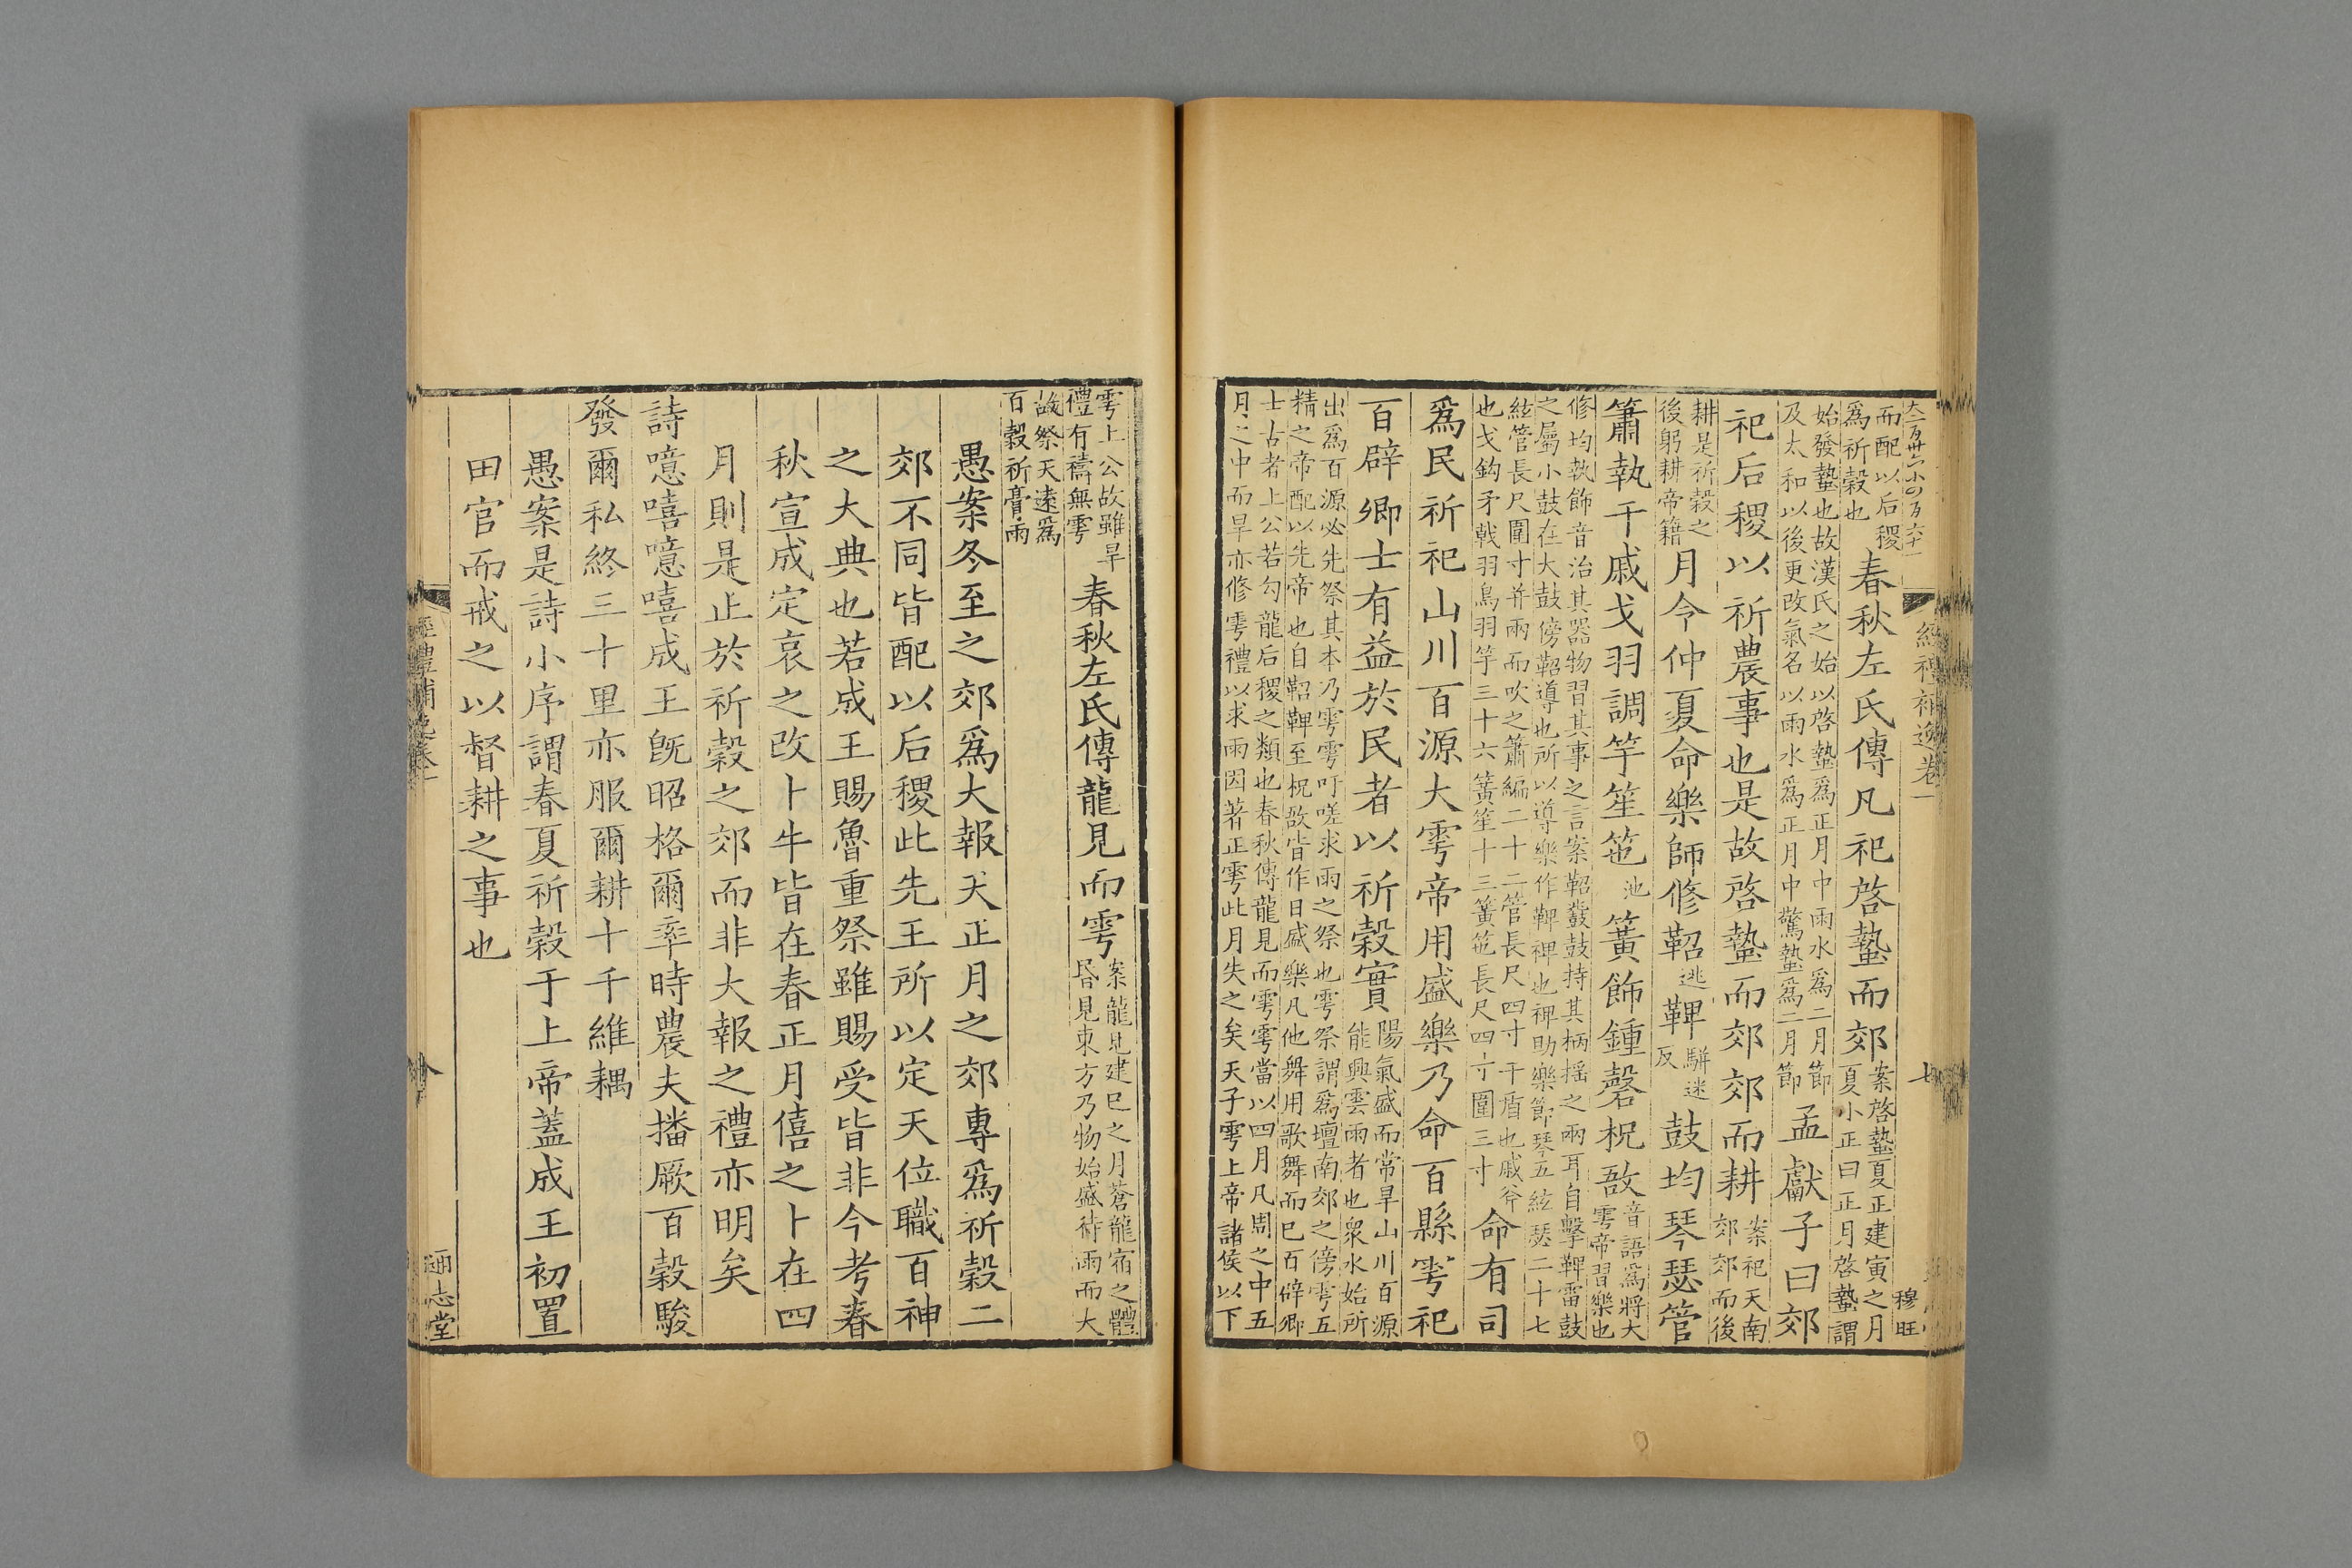 大二百卅六小四百六十一
經禮補逸卷一
七
穆旺
而配以后稷
爲祈穀也
春秋左氏傳凡祀啓蟄而郊
案啓蟄夏正建寅之月
夏小正曰正月啓蟄謂
始發蟄也故漢氏之始以啓蟄爲正月中雨水爲二月節
及太和以後更改氣名以雨水爲正月中驚蟄爲二月節
孟獻子曰郊
祀后稷以祈農事也是故啓蟄而郊郊而耕
案祀天南
郊郊而後
耕是祈穀之
後躬耕帝籍
月令仲夏命樂師修鞀
逃
鞞
騈迷
反
鼓均琴瑟管
簫執干戚戈羽調竽笙笹
池
簧飾鍾磬柷敔
音語爲將大
雩帝習樂也
修均執飾音治其器物習其事之言案鞀鼗鼓持其柄搖之兩耳自擊鞞雷鼓
之屬小鼓在大鼓傍鞀導也所以導樂作鞞裨也裨助樂節琴五絃瑟二十七
絃管長尺圍寸幷兩而吹之簫編二十二管長尺四寸干盾也戚斧
也戈鉤矛戟羽鳥羽竽三十六簧笙十三簧笹長尺四寸圍三寸
命有司
爲民祈祀山川百源大雩帝用盛樂乃命百縣雩祀
百辟卿士有益於民者以祈穀實
陽氣盛而常旱山川百源
能興雲雨者也衆水始所
出爲百源必先祭其本乃雩雩吁嗟求雨之祭也雩祭謂爲壇南郊之傍雩五
精之帝配以先帝也自鞀鞞至柷敔皆作曰盛樂凡他舞用歌舞而已百辟卿
士古者上公若勾龍后稷之類也春秋傳龍見而雩雩當以四月凡周之中五
月之中而旱亦修雩禮以求雨因著正雩此月失之矣天子雩上帝諸侯以下
雩上公故雖旱
禮有禱無雩
春秋左氏傳龍見而雩
案龍見建巳之月蒼龍宿之體
昏見東方乃物始盛待雨而大
故祭天遠爲
百穀祈膏雨
愚案冬至之郊爲大報天正月之郊專爲祈穀二
郊不同皆配以后稷此先王所以定天位職百神
之大典也若成王賜魯重祭雖賜受皆非今考春
秋宣成定哀之改卜牛皆在春正月僖之卜在四
月則是止於祈穀之郊而非大報之禮亦明矣
詩噫嘻噫嘻成王旣昭格爾率時農夫播厥百穀駿
發爾私終三十里亦服爾耕十千維耦
愚案是詩小序謂春夏祈穀于上帝蓋成王初置
田官而戒之以督耕之事也
經禮補逸卷一
通志堂